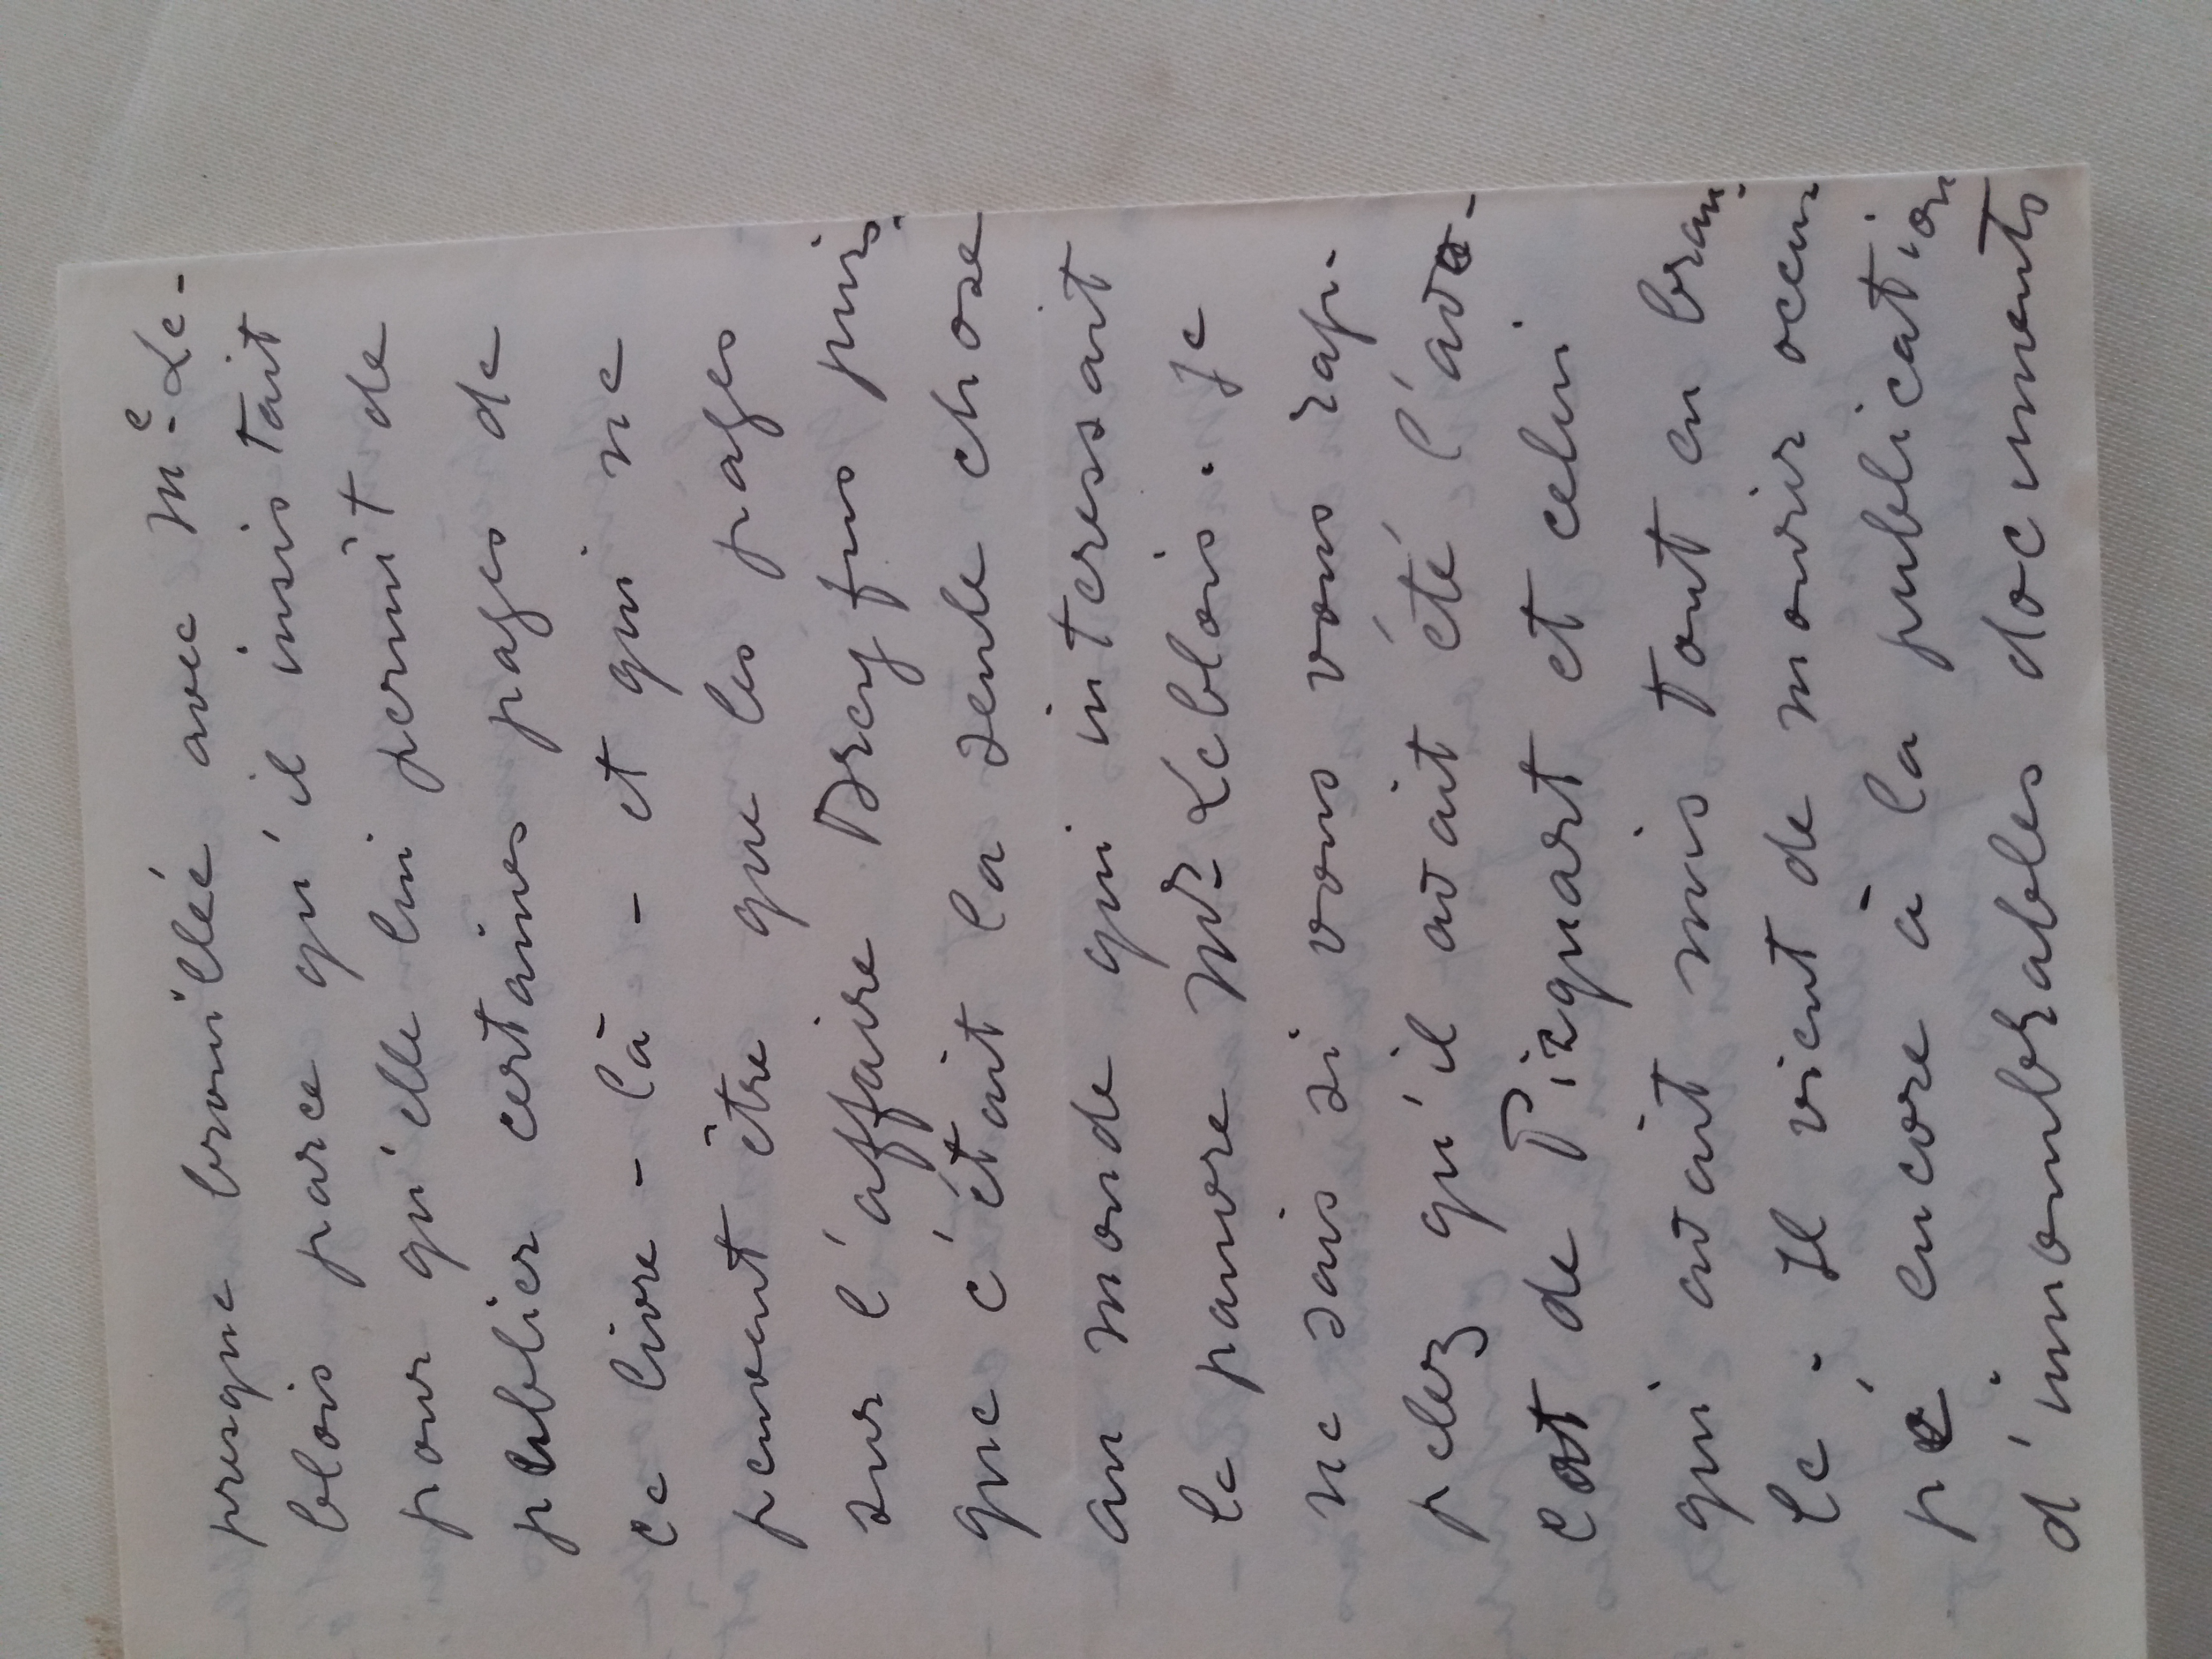 presque brouillée avec Mᵉ Le-
blois parce qu'il insistait
pour qu'elle lui permît de
publier certaines pages de
ce livre-là - et qui ne
peuvent être que les pages
sur l'affaire Dreyfus puis-
que c'était la seule chose
au monde qui interessait
le pauvre Mr Leblois. Je
ne sais si vous vous rap-
pelez qu'il avait été l'avo-
cat de Picquart et celui
qui avait mis tout en bran-
le. Il vient de mourir occu
pé encore à la publication
d'innombrables documents